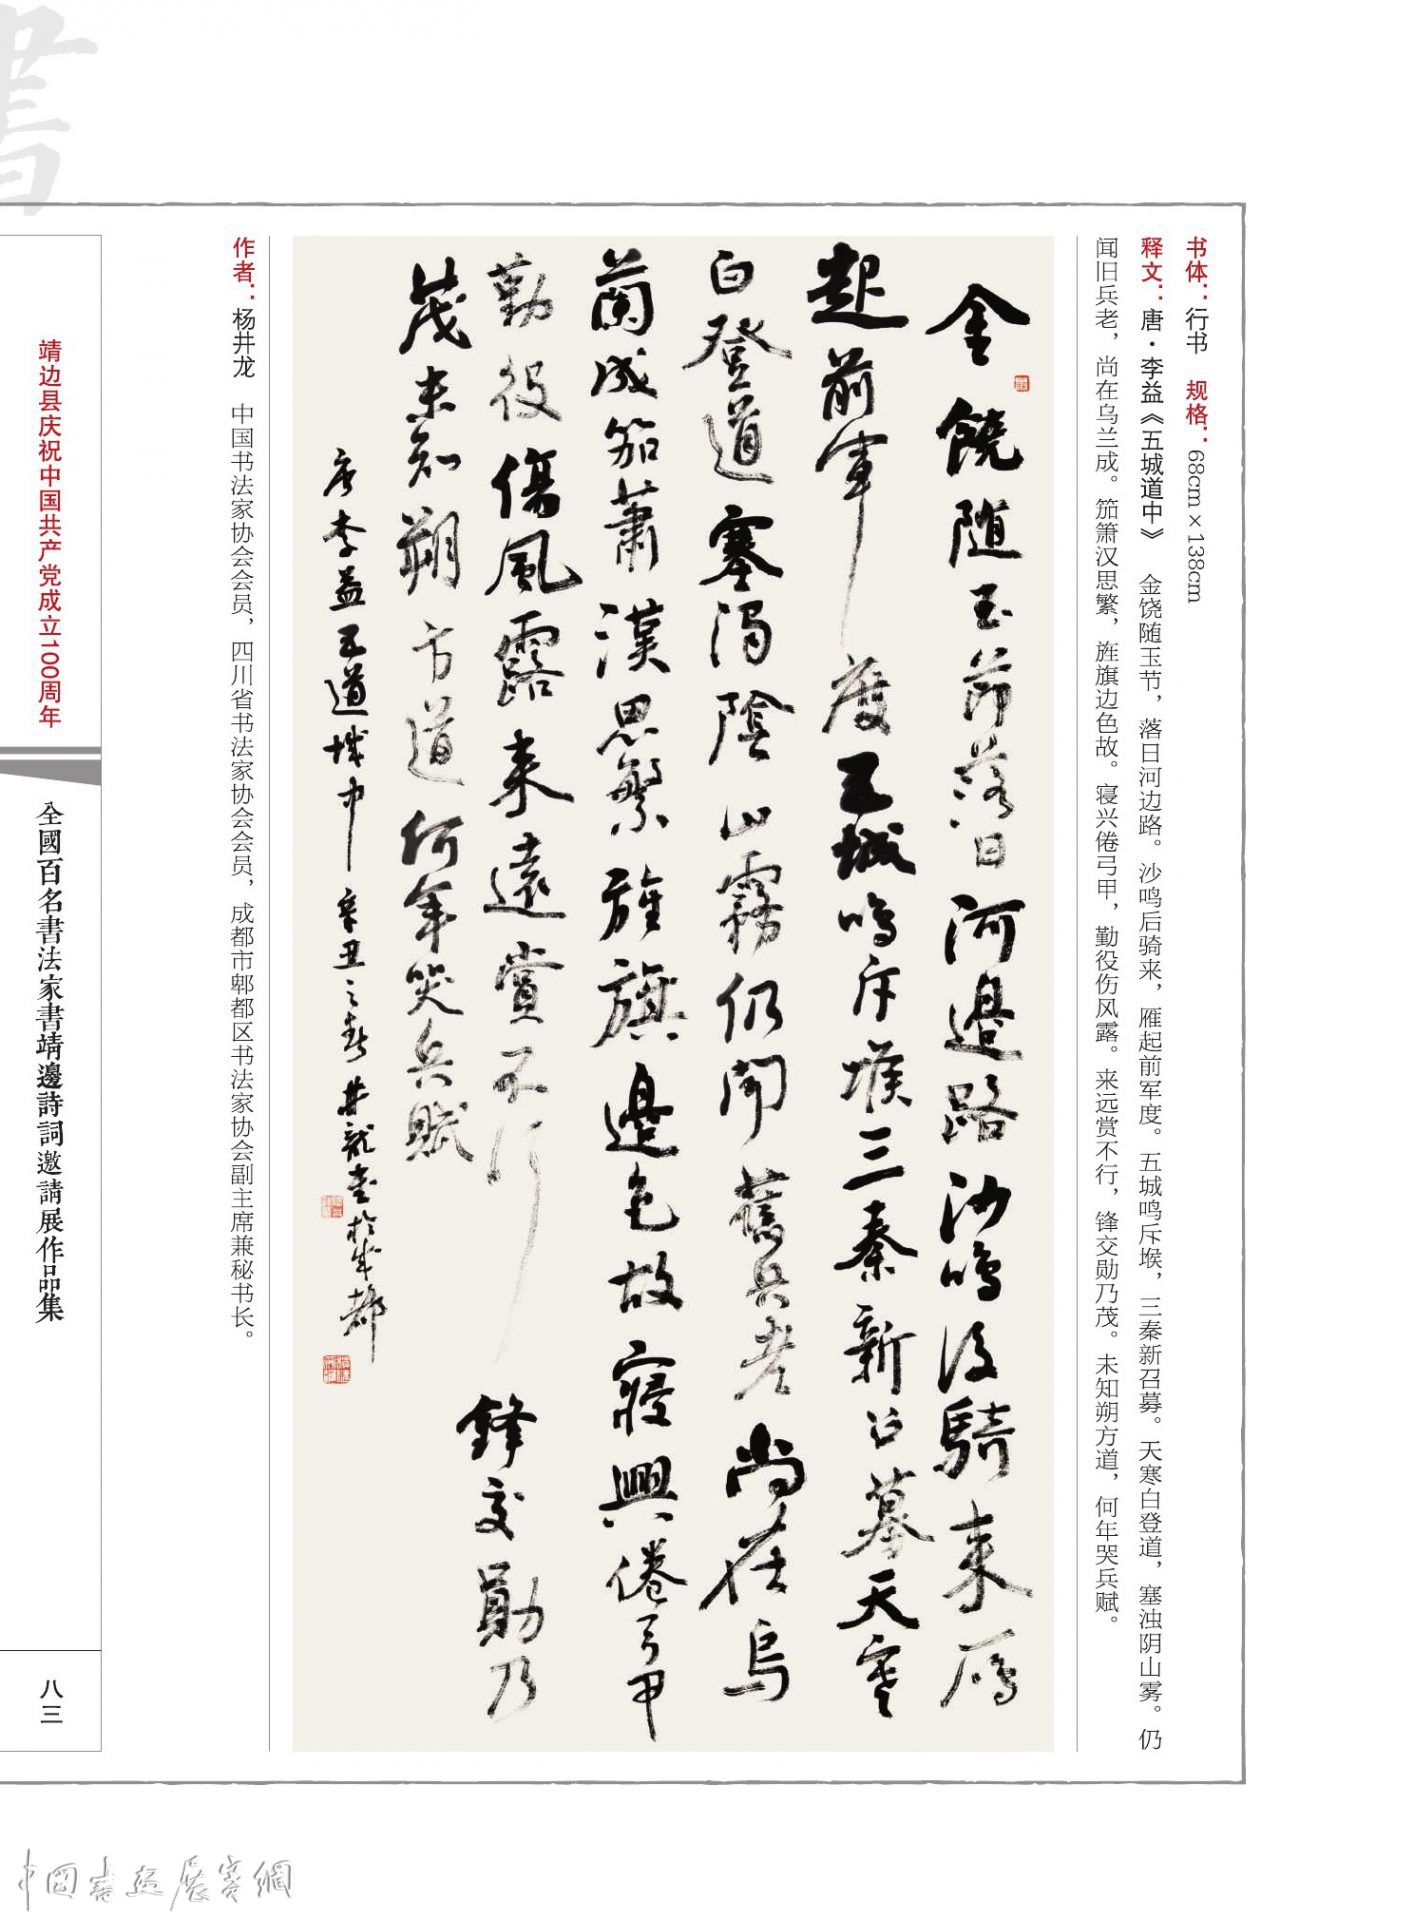 書
书体：行书　规格：68cm×138cm
释文：唐·李益《五城道中》　金饶随玉节，落日河边路。沙鸣后骑来，雁起前军度。五城鸣斥堠，三秦新召募。天寒白登道，塞浊阴山雾。仍
闻旧兵老，尚在乌兰成。笳箫汉思繁，旌旗边色故。寝兴倦弓甲，勤役伤风露。来远赏不行，锋交勋乃茂。未知朔方道，何年哭兵赋。
金饒随玉節落日河邊路沙鳴後騎来雁
起前軍度五城鳴斥堠三秦新召募天寒
白登道塞濁陰山霧仍聞舊兵老尚在烏
蘭成笳蕭漢思繁旌旗邊色故寢興倦弓甲
勤役傷風露来遠賞不行鋒交勛乃
茂未知朔方道何年哭兵賦
唐李益五道城中辛丑之春井龍書於成都
作者：杨井龙　中国书法家协会会员，四川省书法家协会会员，成都市郫都区书法家协会副主席兼秘书长。
靖边县庆祝中国共产党成立100周年
全國百名書法家書靖邊詩詞邀請展作品集
八三
中國書画展賽網